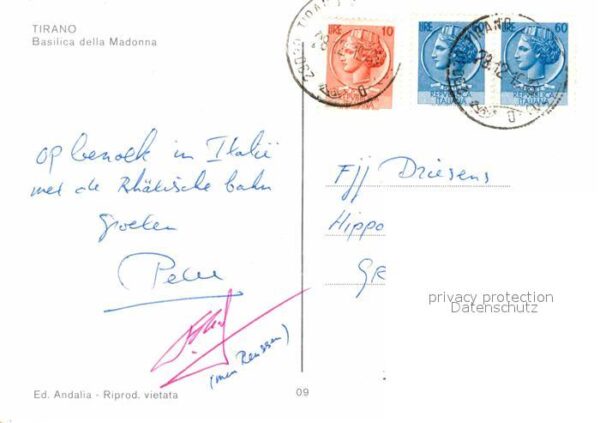 TIRANO
Basilica della Madonna
LIRE 10
LIRE
LIRE 60
REPVBBLICA ITALIANA
REPVBBLICA ITALIANA
TIRANO
TIRANO
28.12
op bezoek in Italië
met de Rhätische bahn
groeten
Peter
Fjj Driesens
Hippo
GR
privacy protection
Datenschutz
Ed. Andalia - Riprod. vietata
09